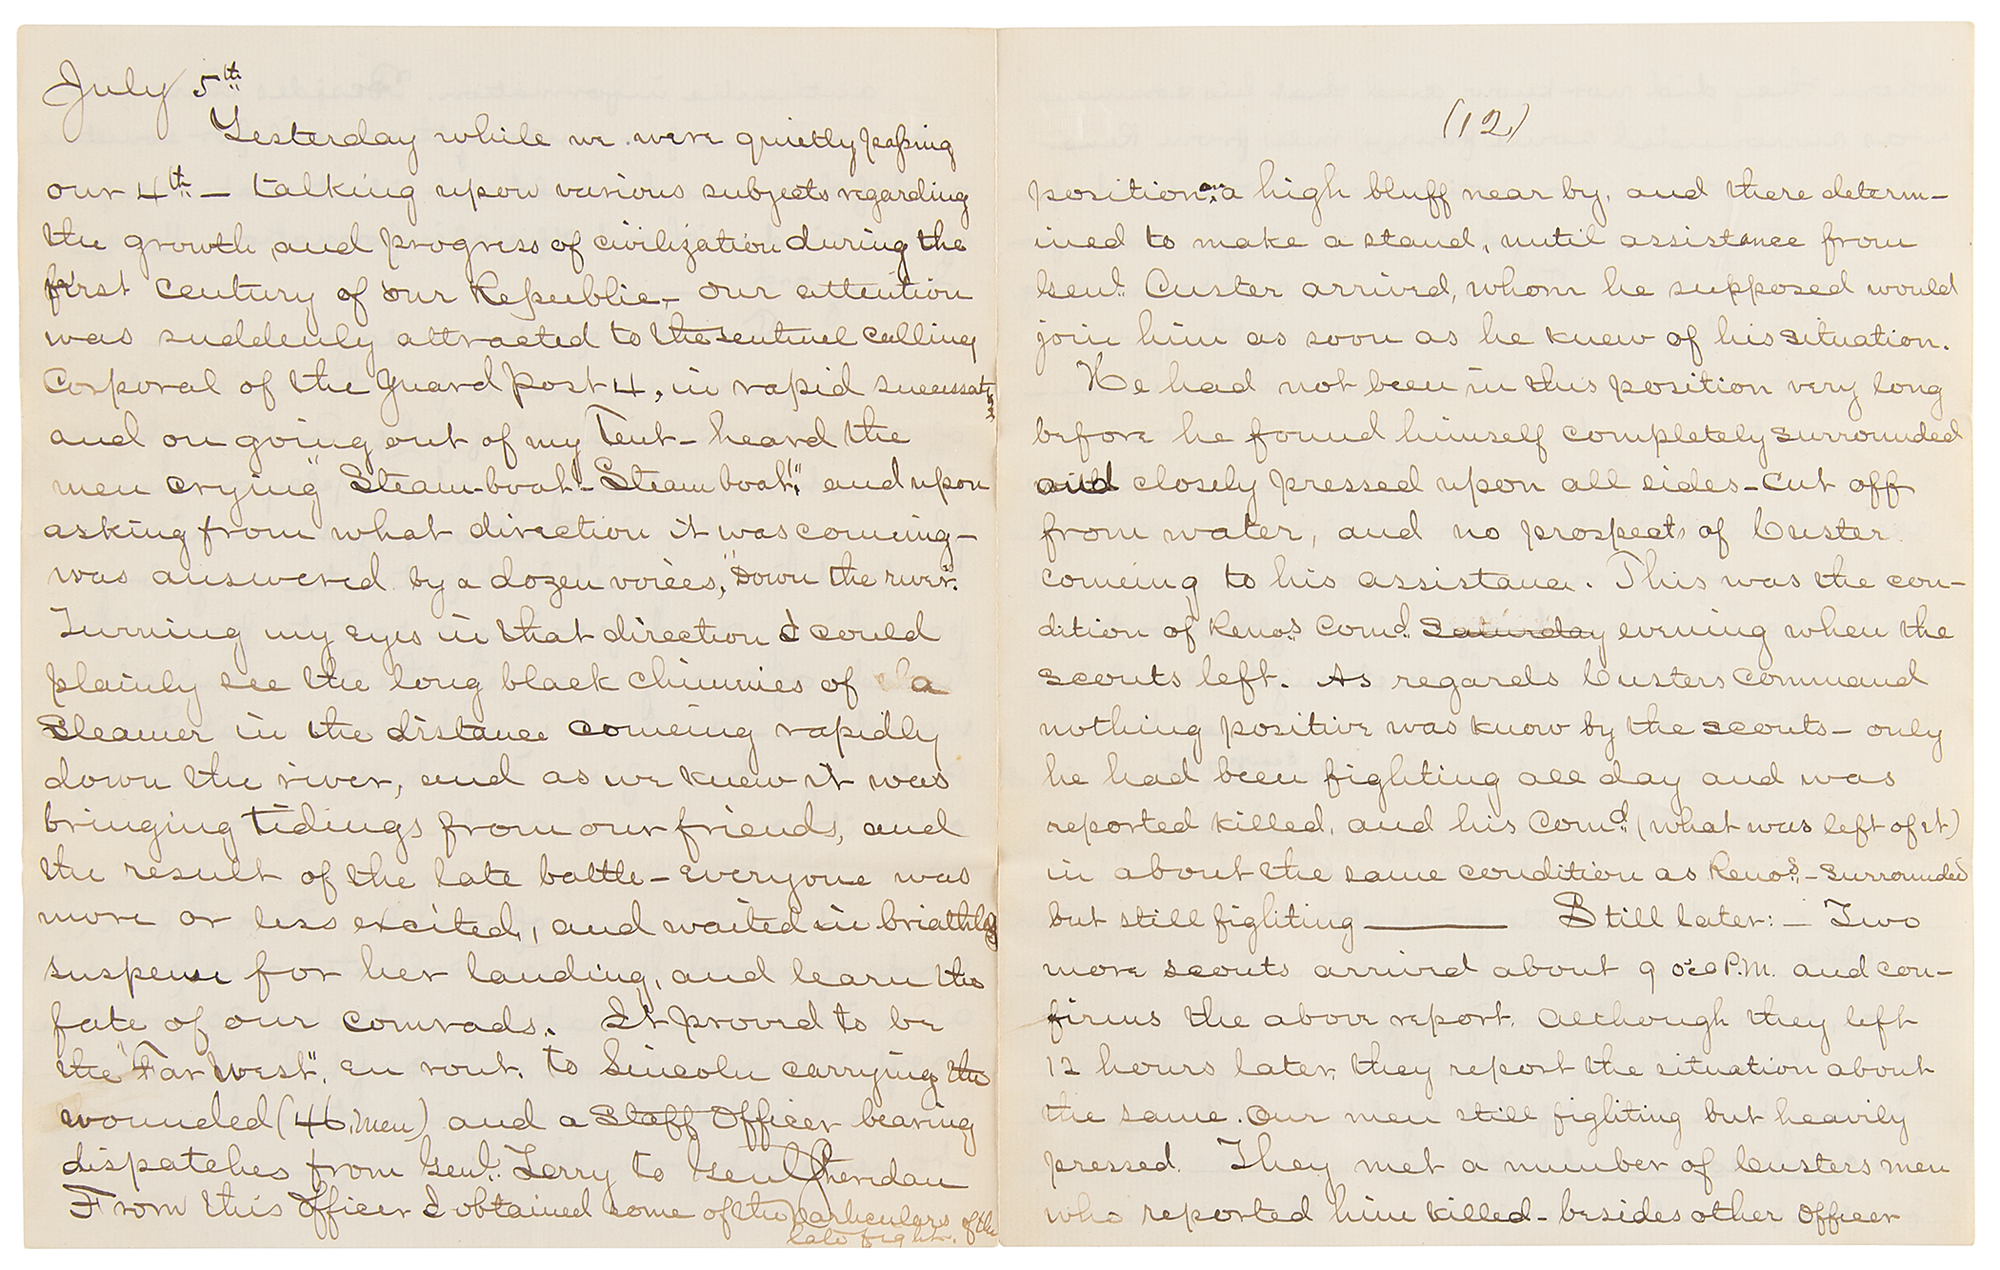 July 5th
Yesterday while we were quietly passing
our 4th - talking upon various subjects regarding
the growth and progress of civilization during the
first century of our Republic, - our attention
was suddenly attracted to the sentinel calling
Corporal of the Guard Post 4, in rapid
and on going out of my Tent - heard the
men crying "Steam-boat - Steam boat", and upon
asking from what direction it was comeing -
was answered by a dozen voices, "Down the river."
Turning my eyes in that direction I could
plainly see the long black chimnies of a
Steamer in the distance comeing rapidly
down the river, and as we knew it was
bringing tidings from our friends, and
the result of the late battle - everyone was
more or less excited, and waited in briathless
suspense for her landing, and learn the
fate of our comrads. It proved to be
the "Far West", en rout, to Lincoln carrying the
wounded (46, men) and a Staff Officer bearing
dispatches from Genl. Terry to Genl Sheridan
From this Officer I obtained some of the particulars of the
late fight.
(12)
position, on a high bluff near by, and there determ-
ined to make a stand, until assistance from
Genl. Custer arrived, whom he supposed would
join him as soon as he knew of his situation.
He had not been in this position very long
before he found himself completely surrounded
and closely pressed upon all sides - cut off
from water, and no prospects of Custer
comeing to his assistance. This was the con-
dition of Reno's Comd. Saturday evening when the
scouts left. As regards Custers command
nothing positive was know by the scouts - only
he had been fighting all day and was
reported killed, and his Comd. (what was left of it)
in about the same condition as Reno's, - surrounded
but still fighting ——— Still later: - Two
more scouts arrived about 9 oclo P.M. and con-
firms the above report. Although they left
12 hours later, they report the situation about
the same. Our men still fighting but heavily
pressed. They met a number of Custers men
who reported him killed - besides other Officer